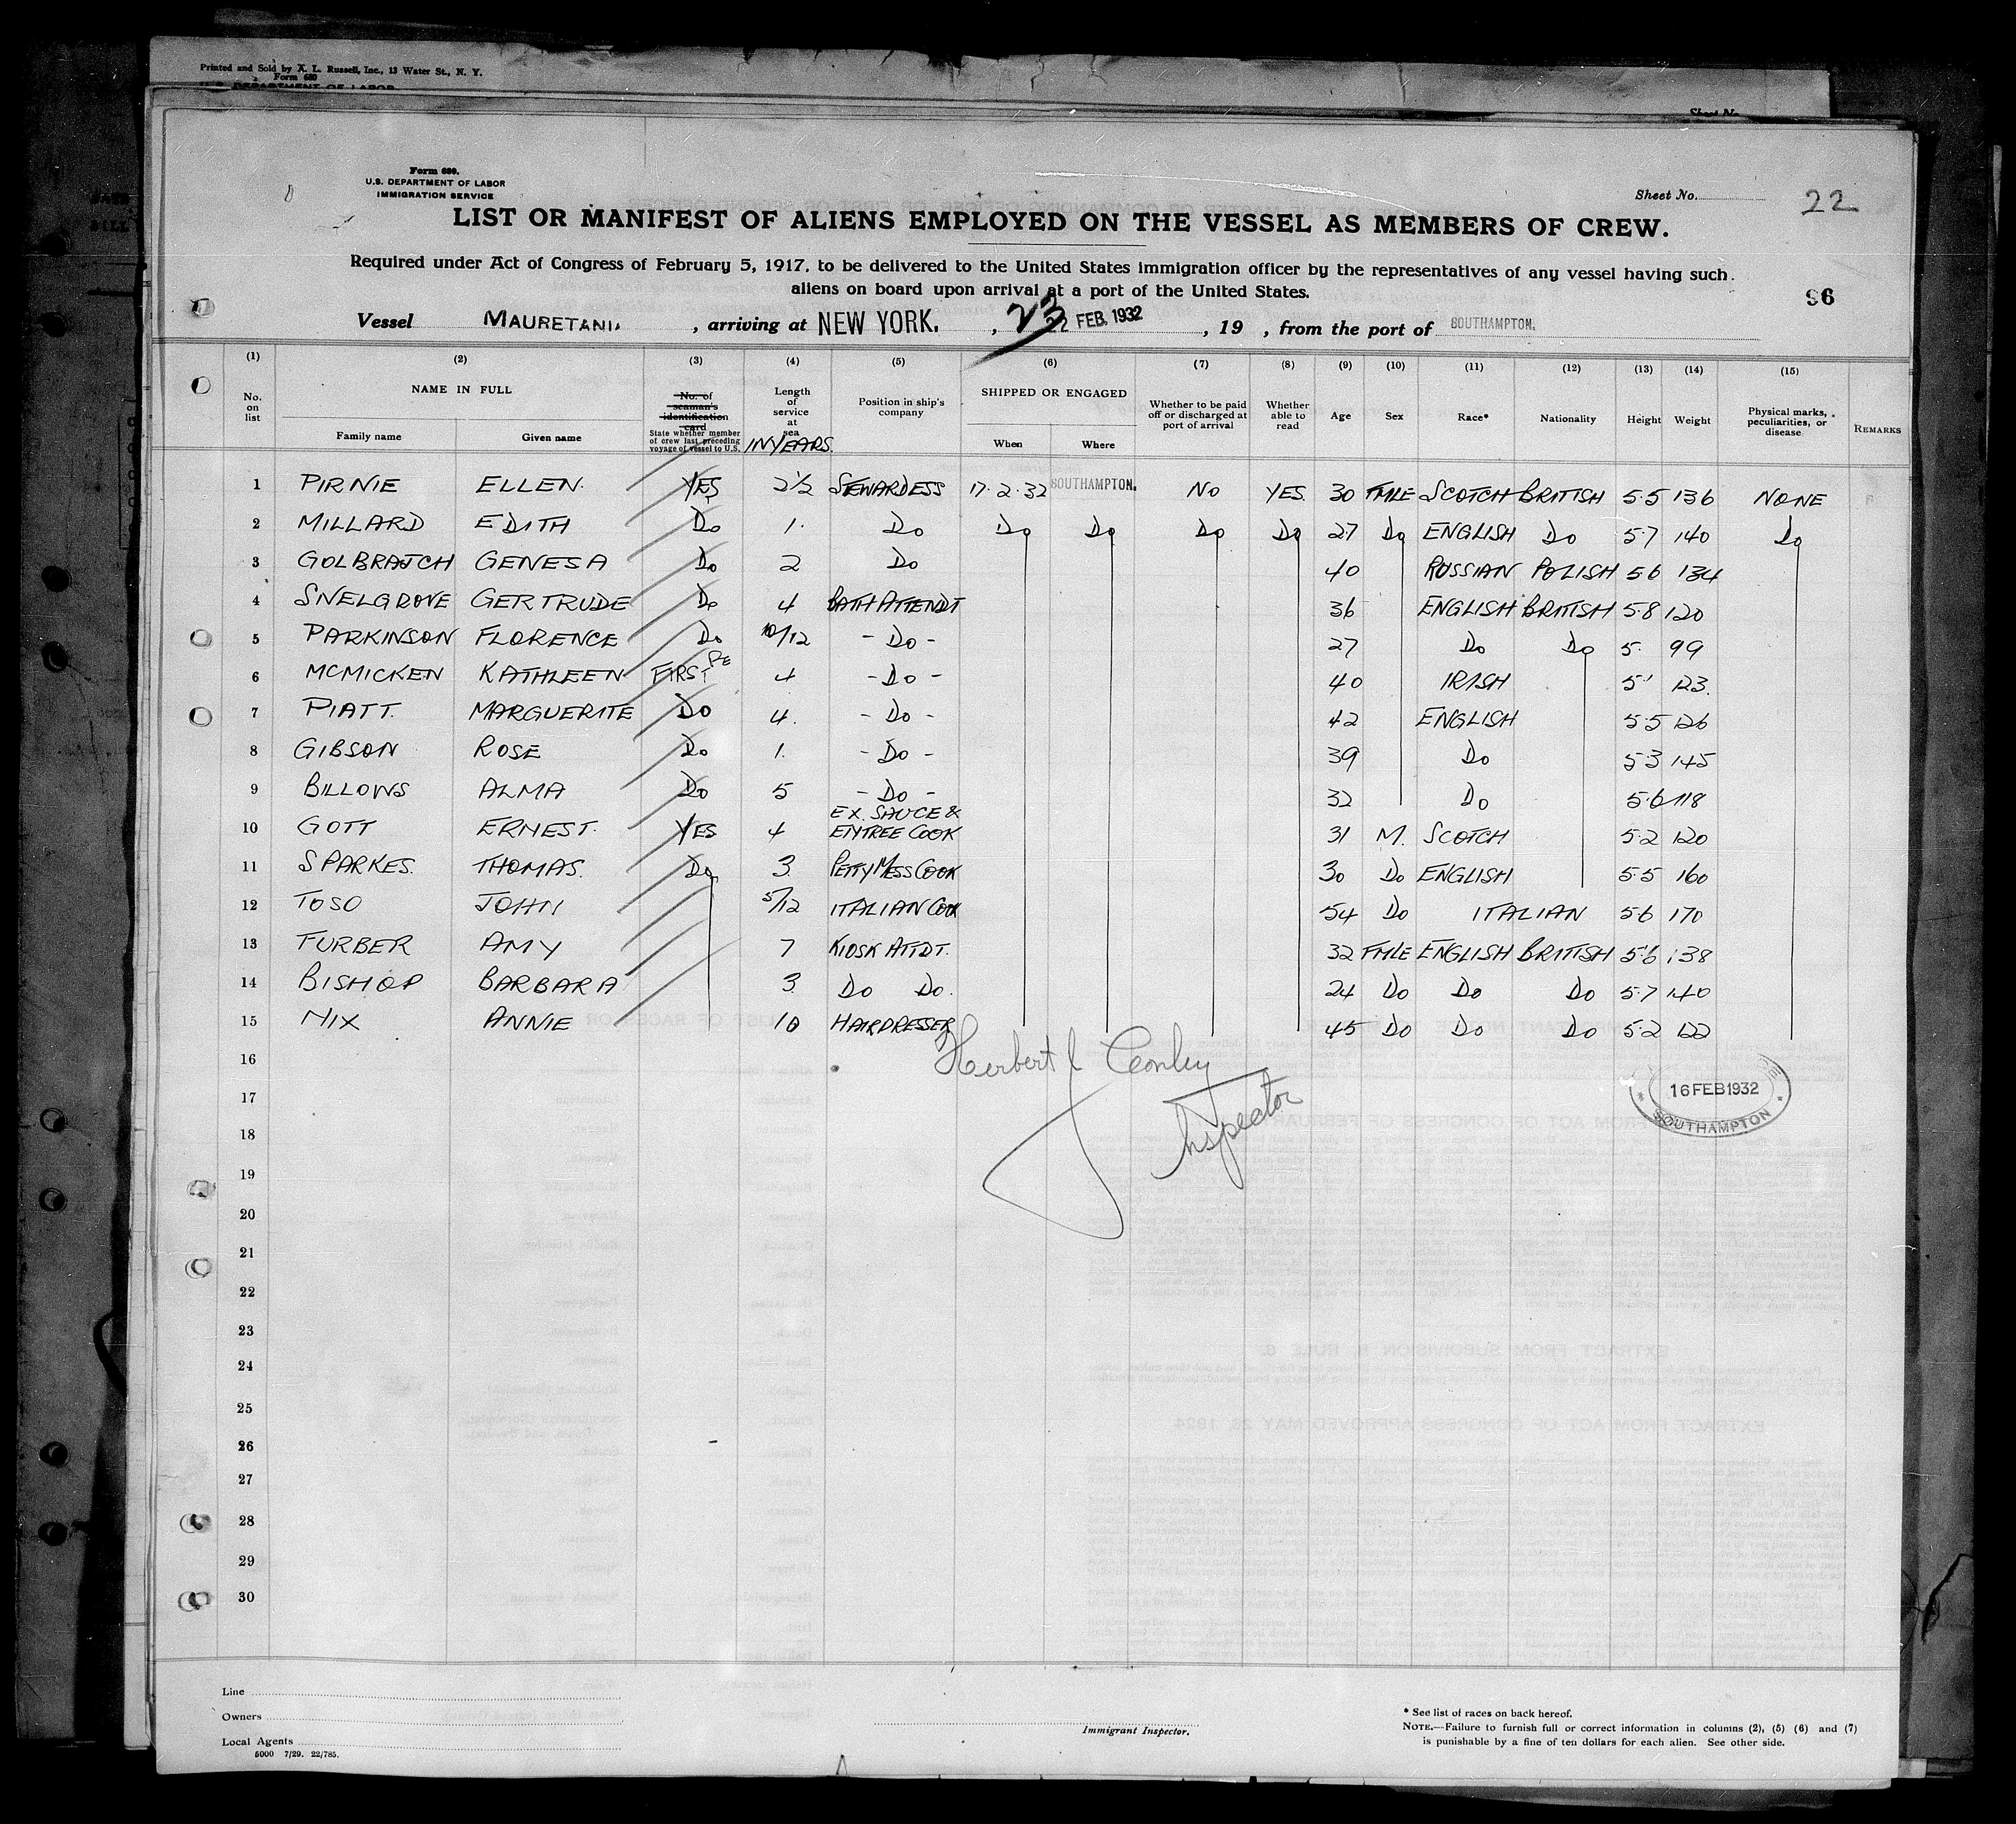 Printed and Sold by A. L. Russell, Inc., 13 Water St., N. Y.
Form 680
U.S. DEPARTMENT OF LABOR
Sheet No.
Form 680.
U.S. DEPARTMENT OF LABOR
IMMIGRATION SERVICE
Sheet No. 22
LIST OR MANIFEST OF ALIENS EMPLOYED ON THE VESSEL AS MEMBERS OF CREW.
Required under Act of Congress of February 5, 1917, to be delivered to the United States immigration officer by the representatives of any vessel having such
aliens on board upon arrival at a port of the United States.
96
Vessel MAURETANIA, arriving at NEW YORK. , 23 22 FEB. 1932 , 19 , from the port of SOUTHAMPTON.
(1) (2) (3) (4) (5) (6) (7) (8) (9) (10) (11) (12) (13) (14) (15)
No. on list
NAME IN FULL
Family name Given name
No. of seaman's identification card
State whether member of crew last preceding voyage of vessel to U.S.
Length of service at sea IN YEARS.
Position in ship's company
SHIPPED OR ENGAGED
When Where
Whether to be paid off or discharged at port of arrival
Whether able to read
Age Sex Race* Nationality Height Weight
Physical marks, peculiarities, or disease
REMARKS
1 PIRNIE ELLEN. YES 2½ STEWARDESS 17.2.32 SOUTHAMPTON. NO YES. 30 FMLE SCOTCH BRITISH 5.5 136 NONE
2 MILLARD EDITH Do 1. Do Do Do Do Do 27 Do ENGLISH Do 5.7 140 Do
3 GOLBRAJCH GENESA Do 2 Do 40 RUSSIAN POLISH 5.6 134
4 SNELGROVE GERTRUDE Do 4 BATH ATTENDT 36 ENGLISH BRITISH 5.8 120
5 PARKINSON FLORENCE Do 10/12 - Do - 27 Do Do 5. 99
6 MCMICKEN KATHLEEN FIRST 4 - Do - 40 IRISH 5.1 123.
7 PIATT. MARGUERITE Do 4. - Do - 42 ENGLISH 5.5 126
8 GIBSON ROSE Do 1. - Do - 39 Do 5.3 145
9 BILLOWS ALMA Do 5 - Do - 32 Do 5.6 118
10 GOTT ERNEST. YES 4 EX. SAUCE & ENTREE COOK 31 M. SCOTCH 5.2 120
11 SPARKES. THOMAS. Do 3 PETTY MESS COOK 30 Do ENGLISH 5.5 160
12 TOSO JOHN 5/12 ITALIAN COOK 54 Do ITALIAN 5.6 170
13 FURBER AMY 7 KIOSK ATTDT. 32 FMLE ENGLISH BRITISH 5.6 138
14 BISHOP BARBARA 3 Do Do. 24 Do Do Do 5.7 140
15 NIX ANNIE 10 HAIRDRESSER 45 Do Do Do 5.2 122
16
Herbert J Conley
Inspector
16 FEB 1932
SOUTHAMPTON
17
18
19
20
21
22
23
24
25
26
27
28
29
30
Line
Owners
Local Agents
5000 7/29. 22/785.
Immigrant Inspector.
* See list of races on back hereof.
NOTE.—Failure to furnish full or correct information in columns (2), (5) (6) and (7)
is punishable by a fine of ten dollars for each alien. See other side.